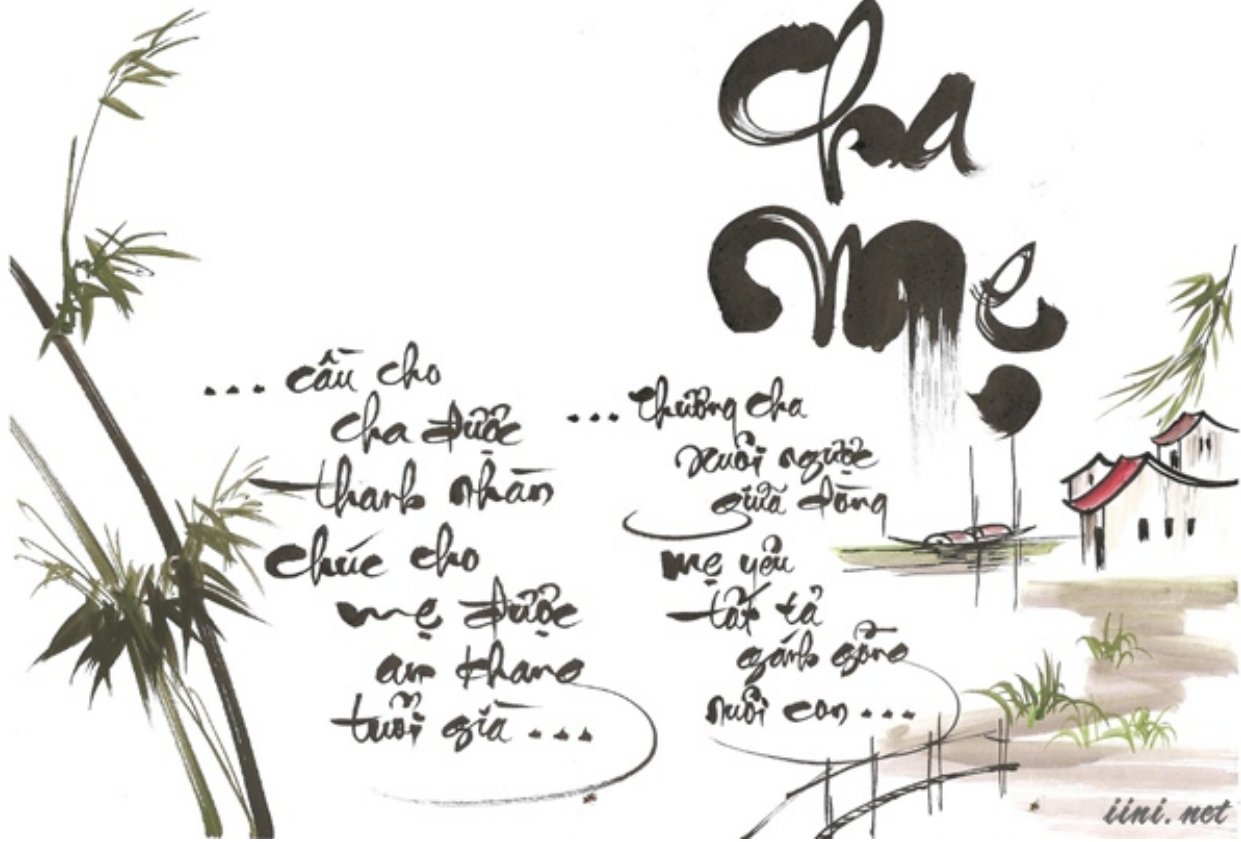 Cha
Mẹ
... cầu cho
cha được
thanh nhàn
chúc cho
mẹ được
an khang
tuổi già ...
... thương cha
xuôi ngược
giữa dòng
mẹ yêu
tất tả
gánh gồng
nuôi con ...
iini.net